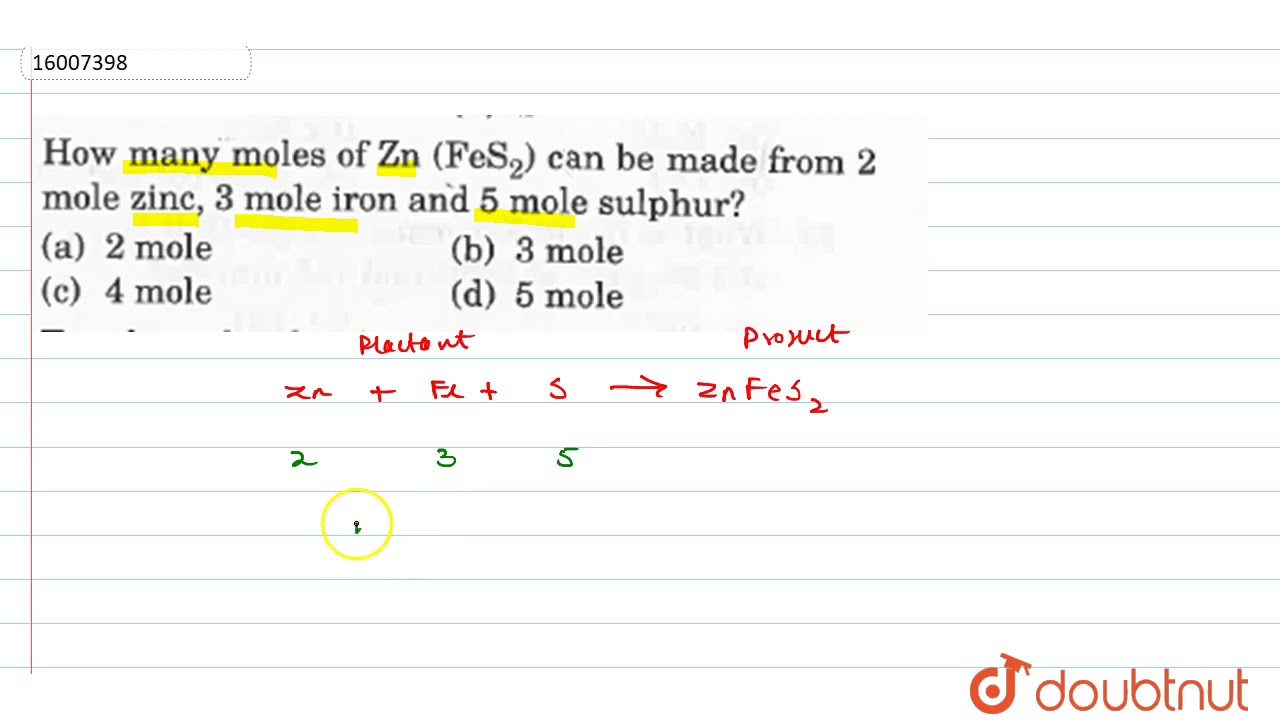 16007398
How many moles of Zn (FeS₂) can be made from 2
mole zinc, 3 mole iron and 5 mole sulphur?
(a) 2 mole (b) 3 mole
(c) 4 mole (d) 5 mole
Product
Zn + Fe + S → ZnFeS₂
2 3 5
doubtnut